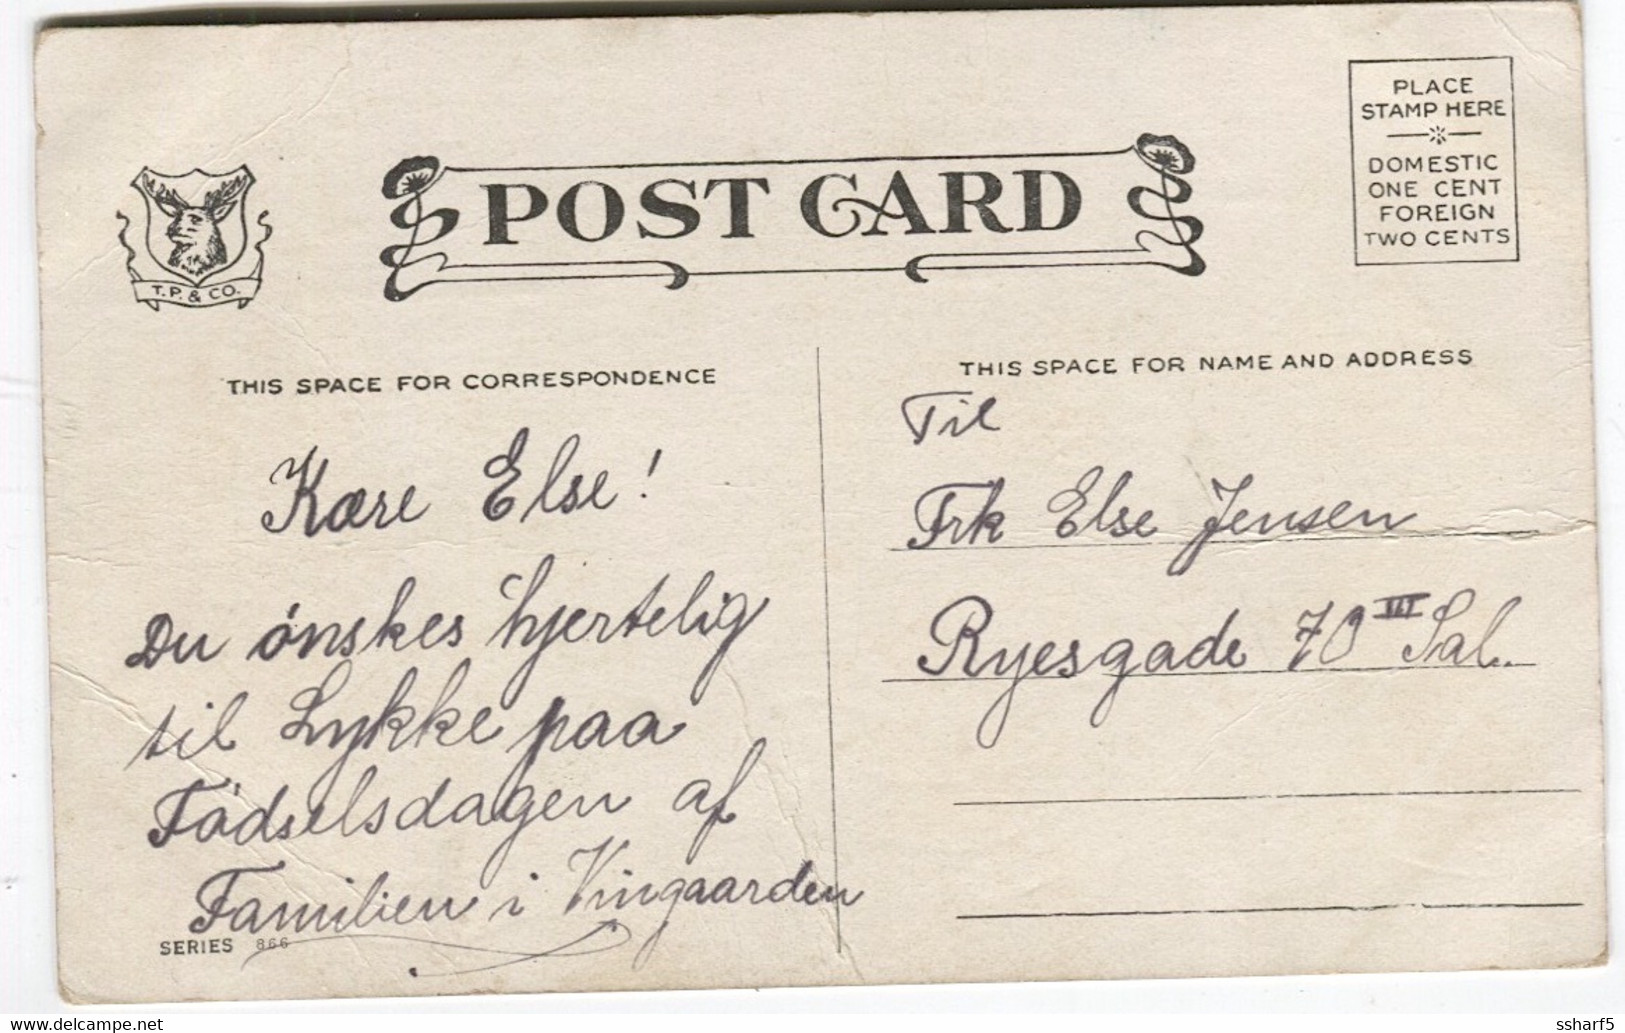 PLACE
STAMP HERE
DOMESTIC
ONE CENT
FOREIGN
TWO CENTS
POST CARD
T.P. & CO.
THIS SPACE FOR CORRESPONDENCE
Kære Else!
Du ønskes hjertelig
til Lykke paa
Födselsdagen af
Familien i Vingaarden
SERIES 866
THIS SPACE FOR NAME AND ADDRESS
Til
Frk Else Jensen
Ryesgade 70 III Sal.
delcampe.net
ssharf5